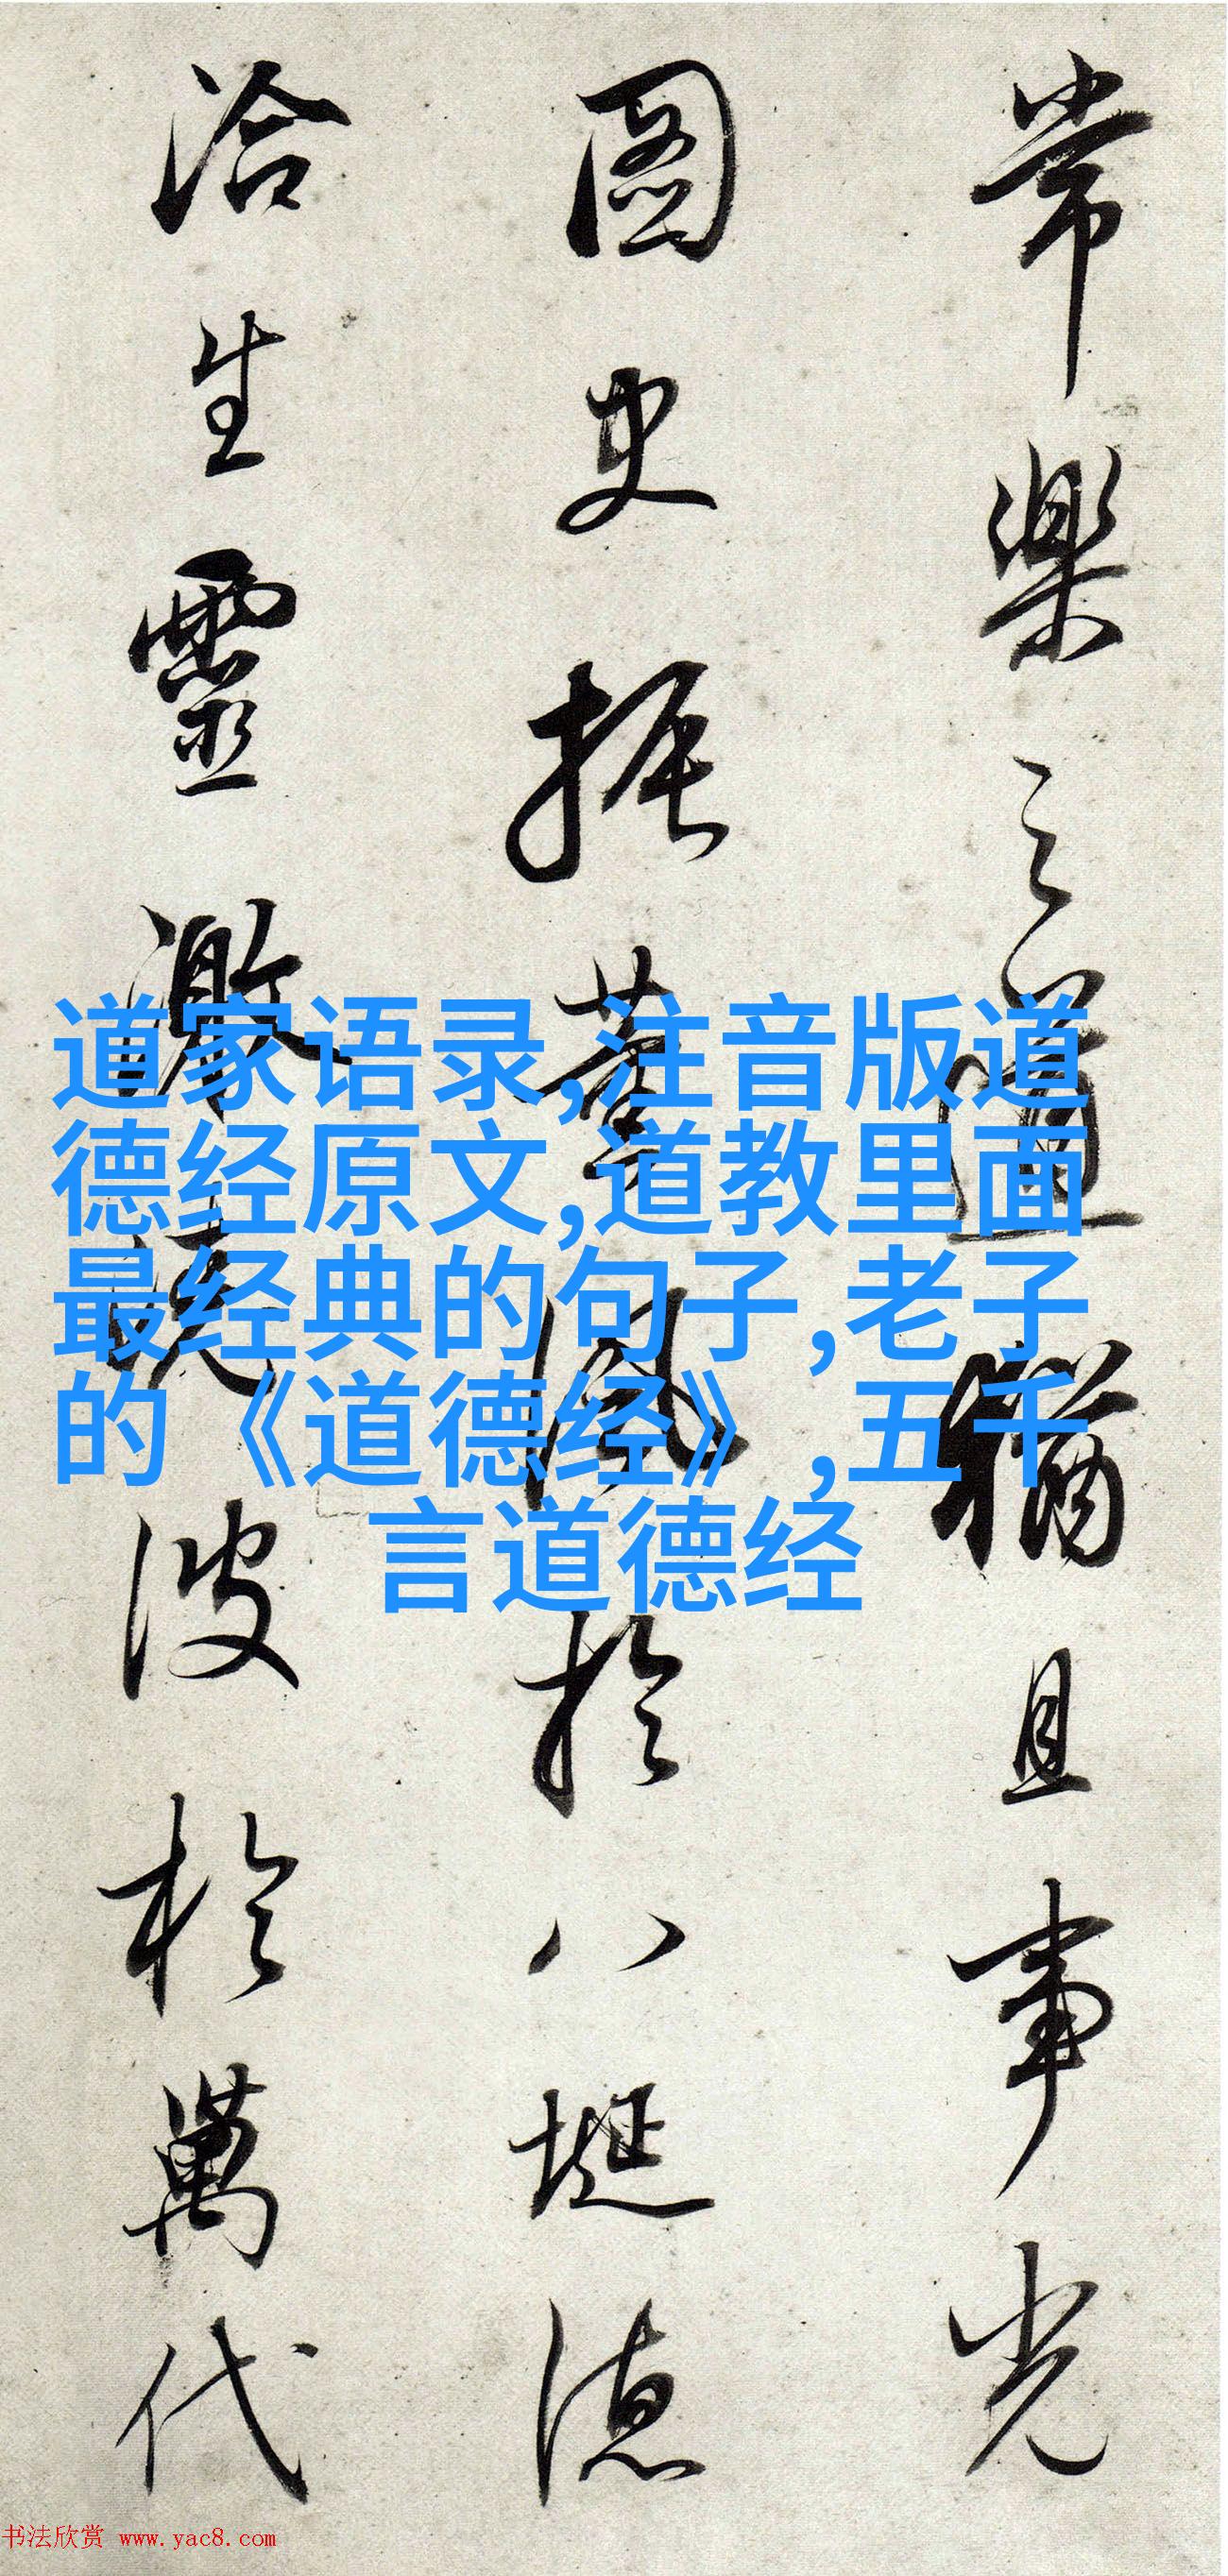 常樂之道猶且事光
圖史振薰風於八埏德
洽生靈激清波於萬代
道家语录,注音版道
德经原文,道教里面
最经典的句子,老子
的《道德经》,五千
言道德经
书法欣赏 www.yac8.com